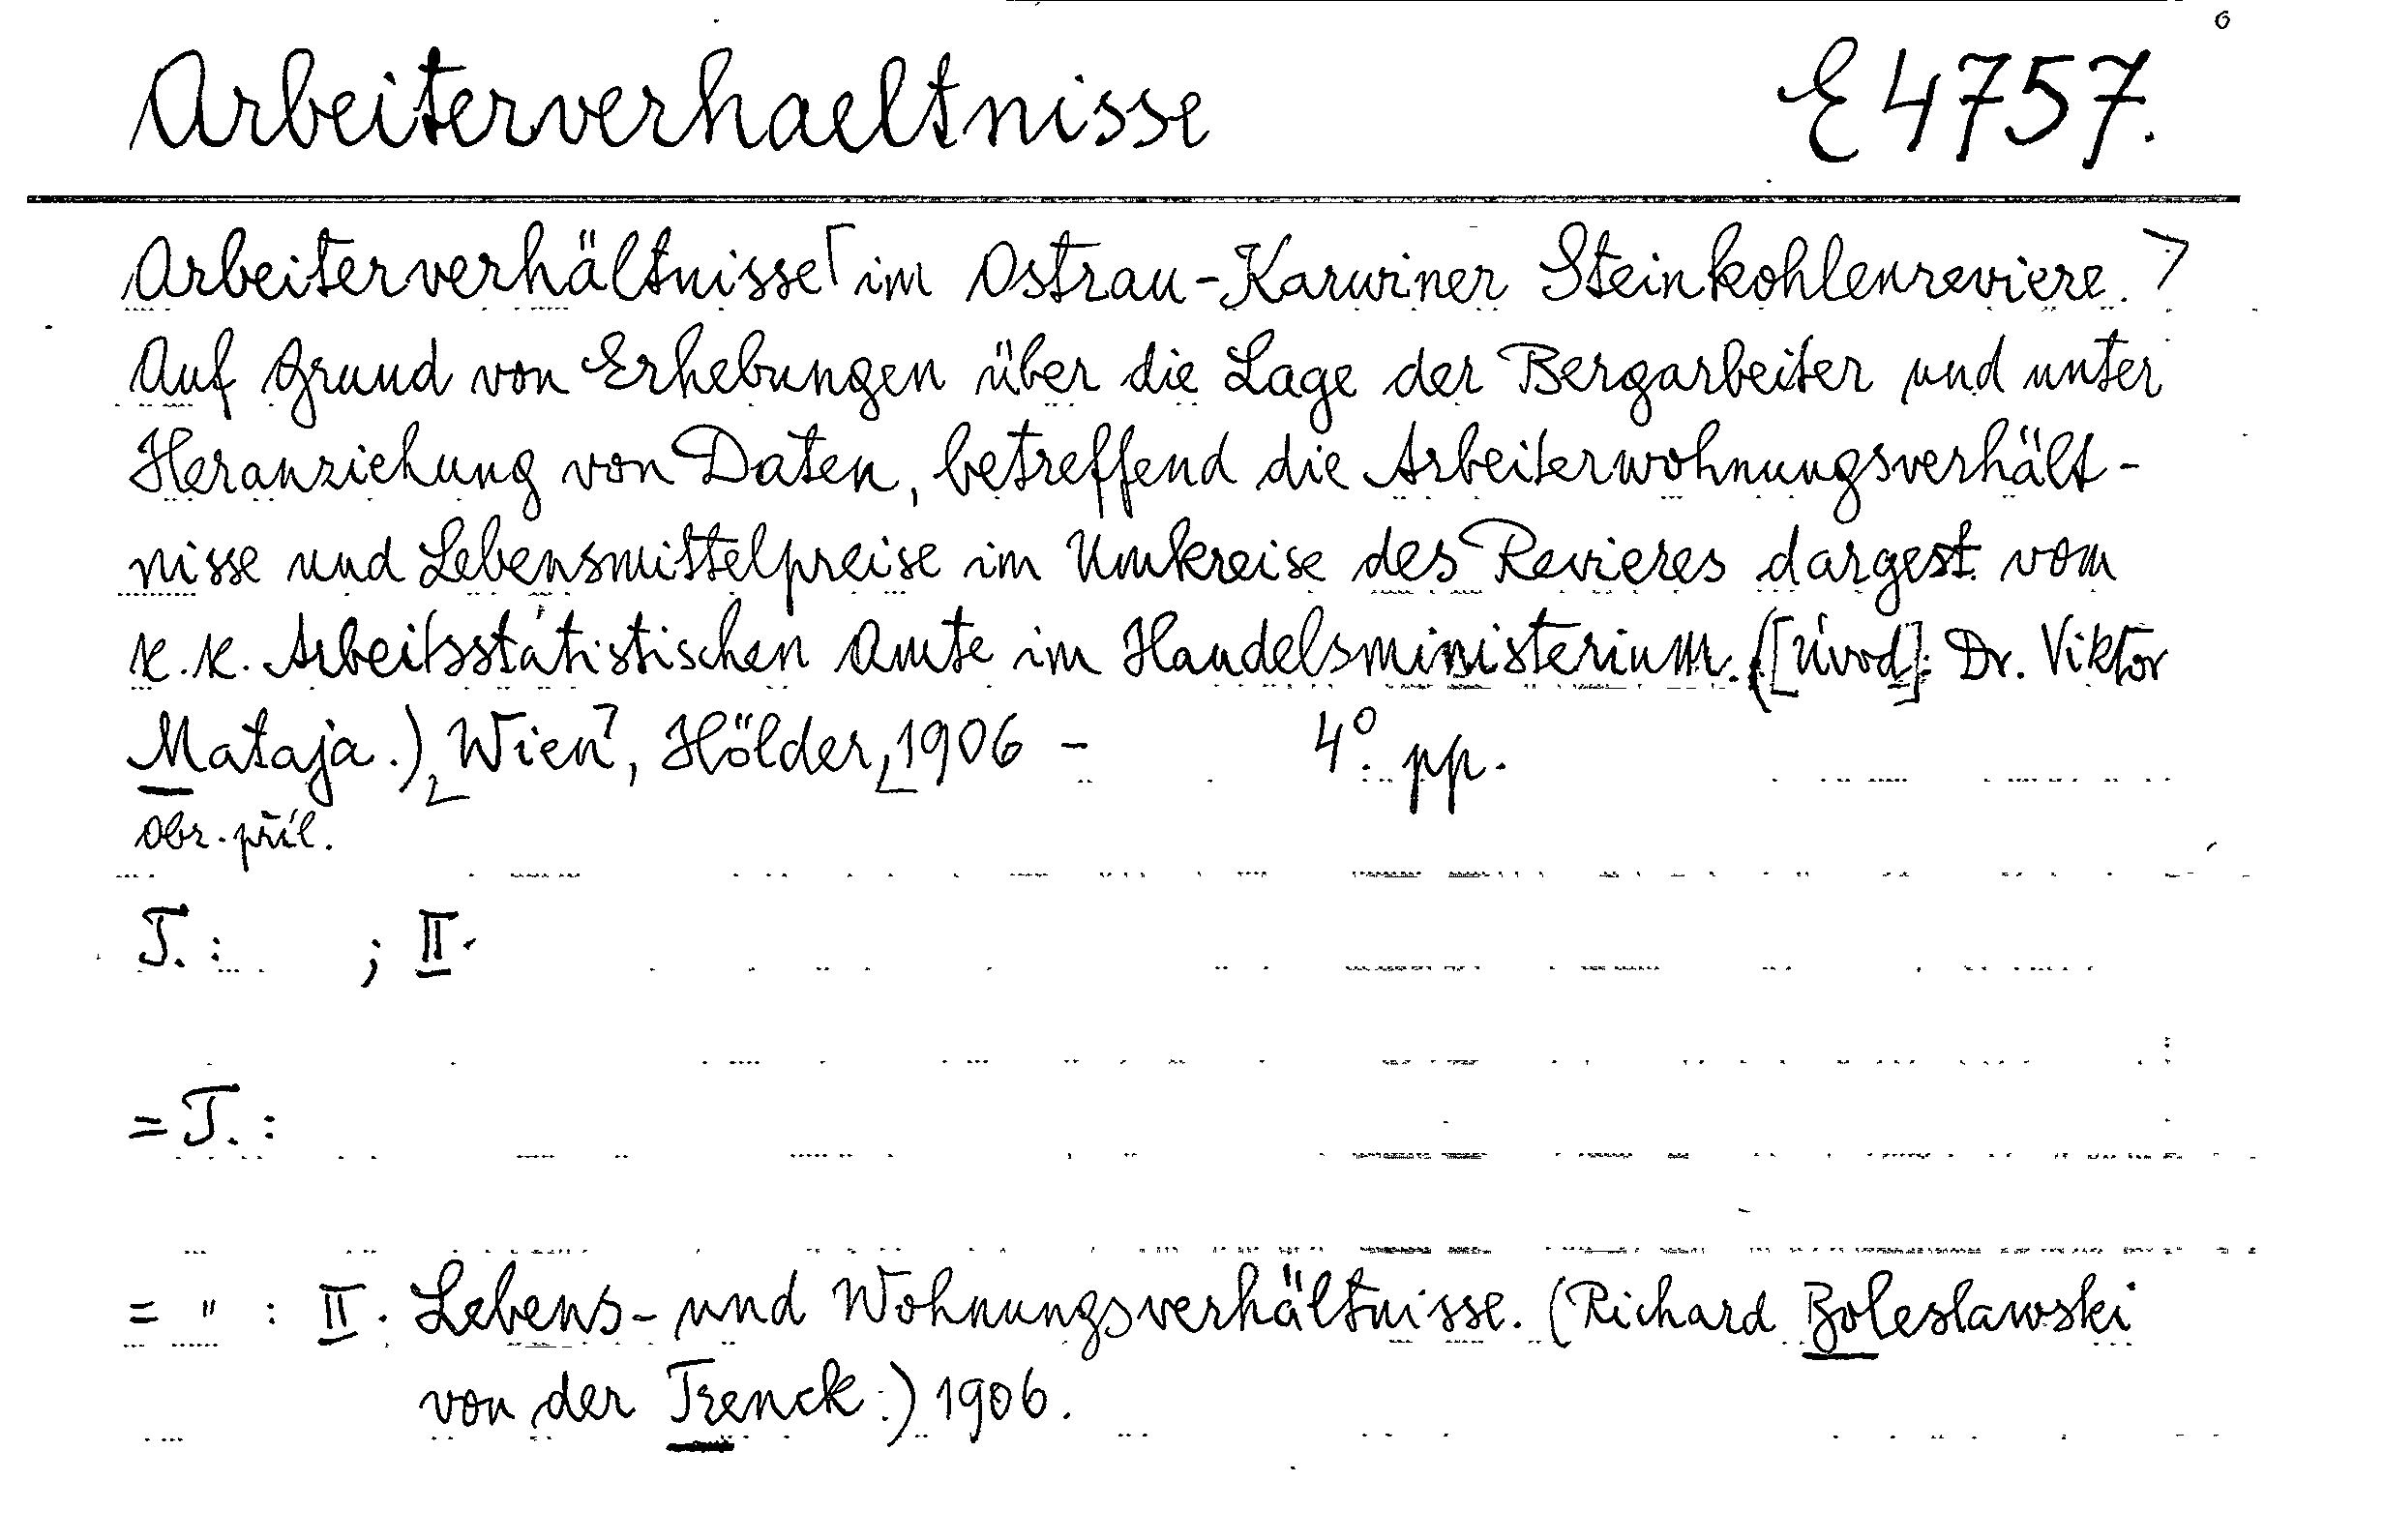 Arbeiterverhaeltnisse E 4757.
Arbeiterverhältnisse im Ostrau-Karwiner Steinkohlenreviere.
Auf Grund von Erhebungen über die Lage der Bergarbeiter und unter
Heranziehung von Daten, betreffend die Arbeiterwohnungsverhält-
nisse und Lebensmittelpreise im Umkreise des Revieres dargest. vom
k. k. Arbeitsstatistischen Amte im Handelsministerium. ([Úvod]: Dr. Viktor
Mataja.) Wien, Hölder, 1906 - 4°. pp.
obr. příl.
T.: ; II.
= T.:
= " : II. Lebens- und Wohnungsverhältnisse. (Richard Boleslawski
von der Trenck.) 1906.